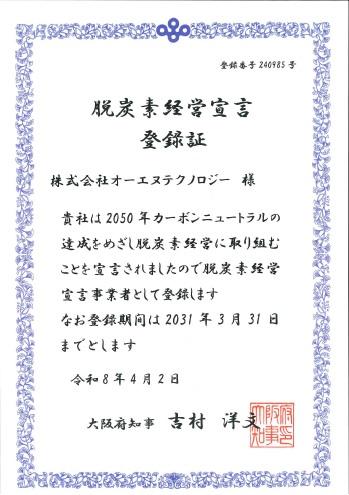 登録番号240985号
脱炭素経営宣言
登録証
株式会社オーエヌテクノロジー 様
貴社は2050年カーボンニュートラルの
達成をめざし脱炭素経営に取り組む
ことを宣言されましたので脱炭素経営
宣言事業者として登録します
なお登録期間は2031年3月31日
までとします
令和8年4月2日
大阪府知事 吉村 洋文
大阪府知事印